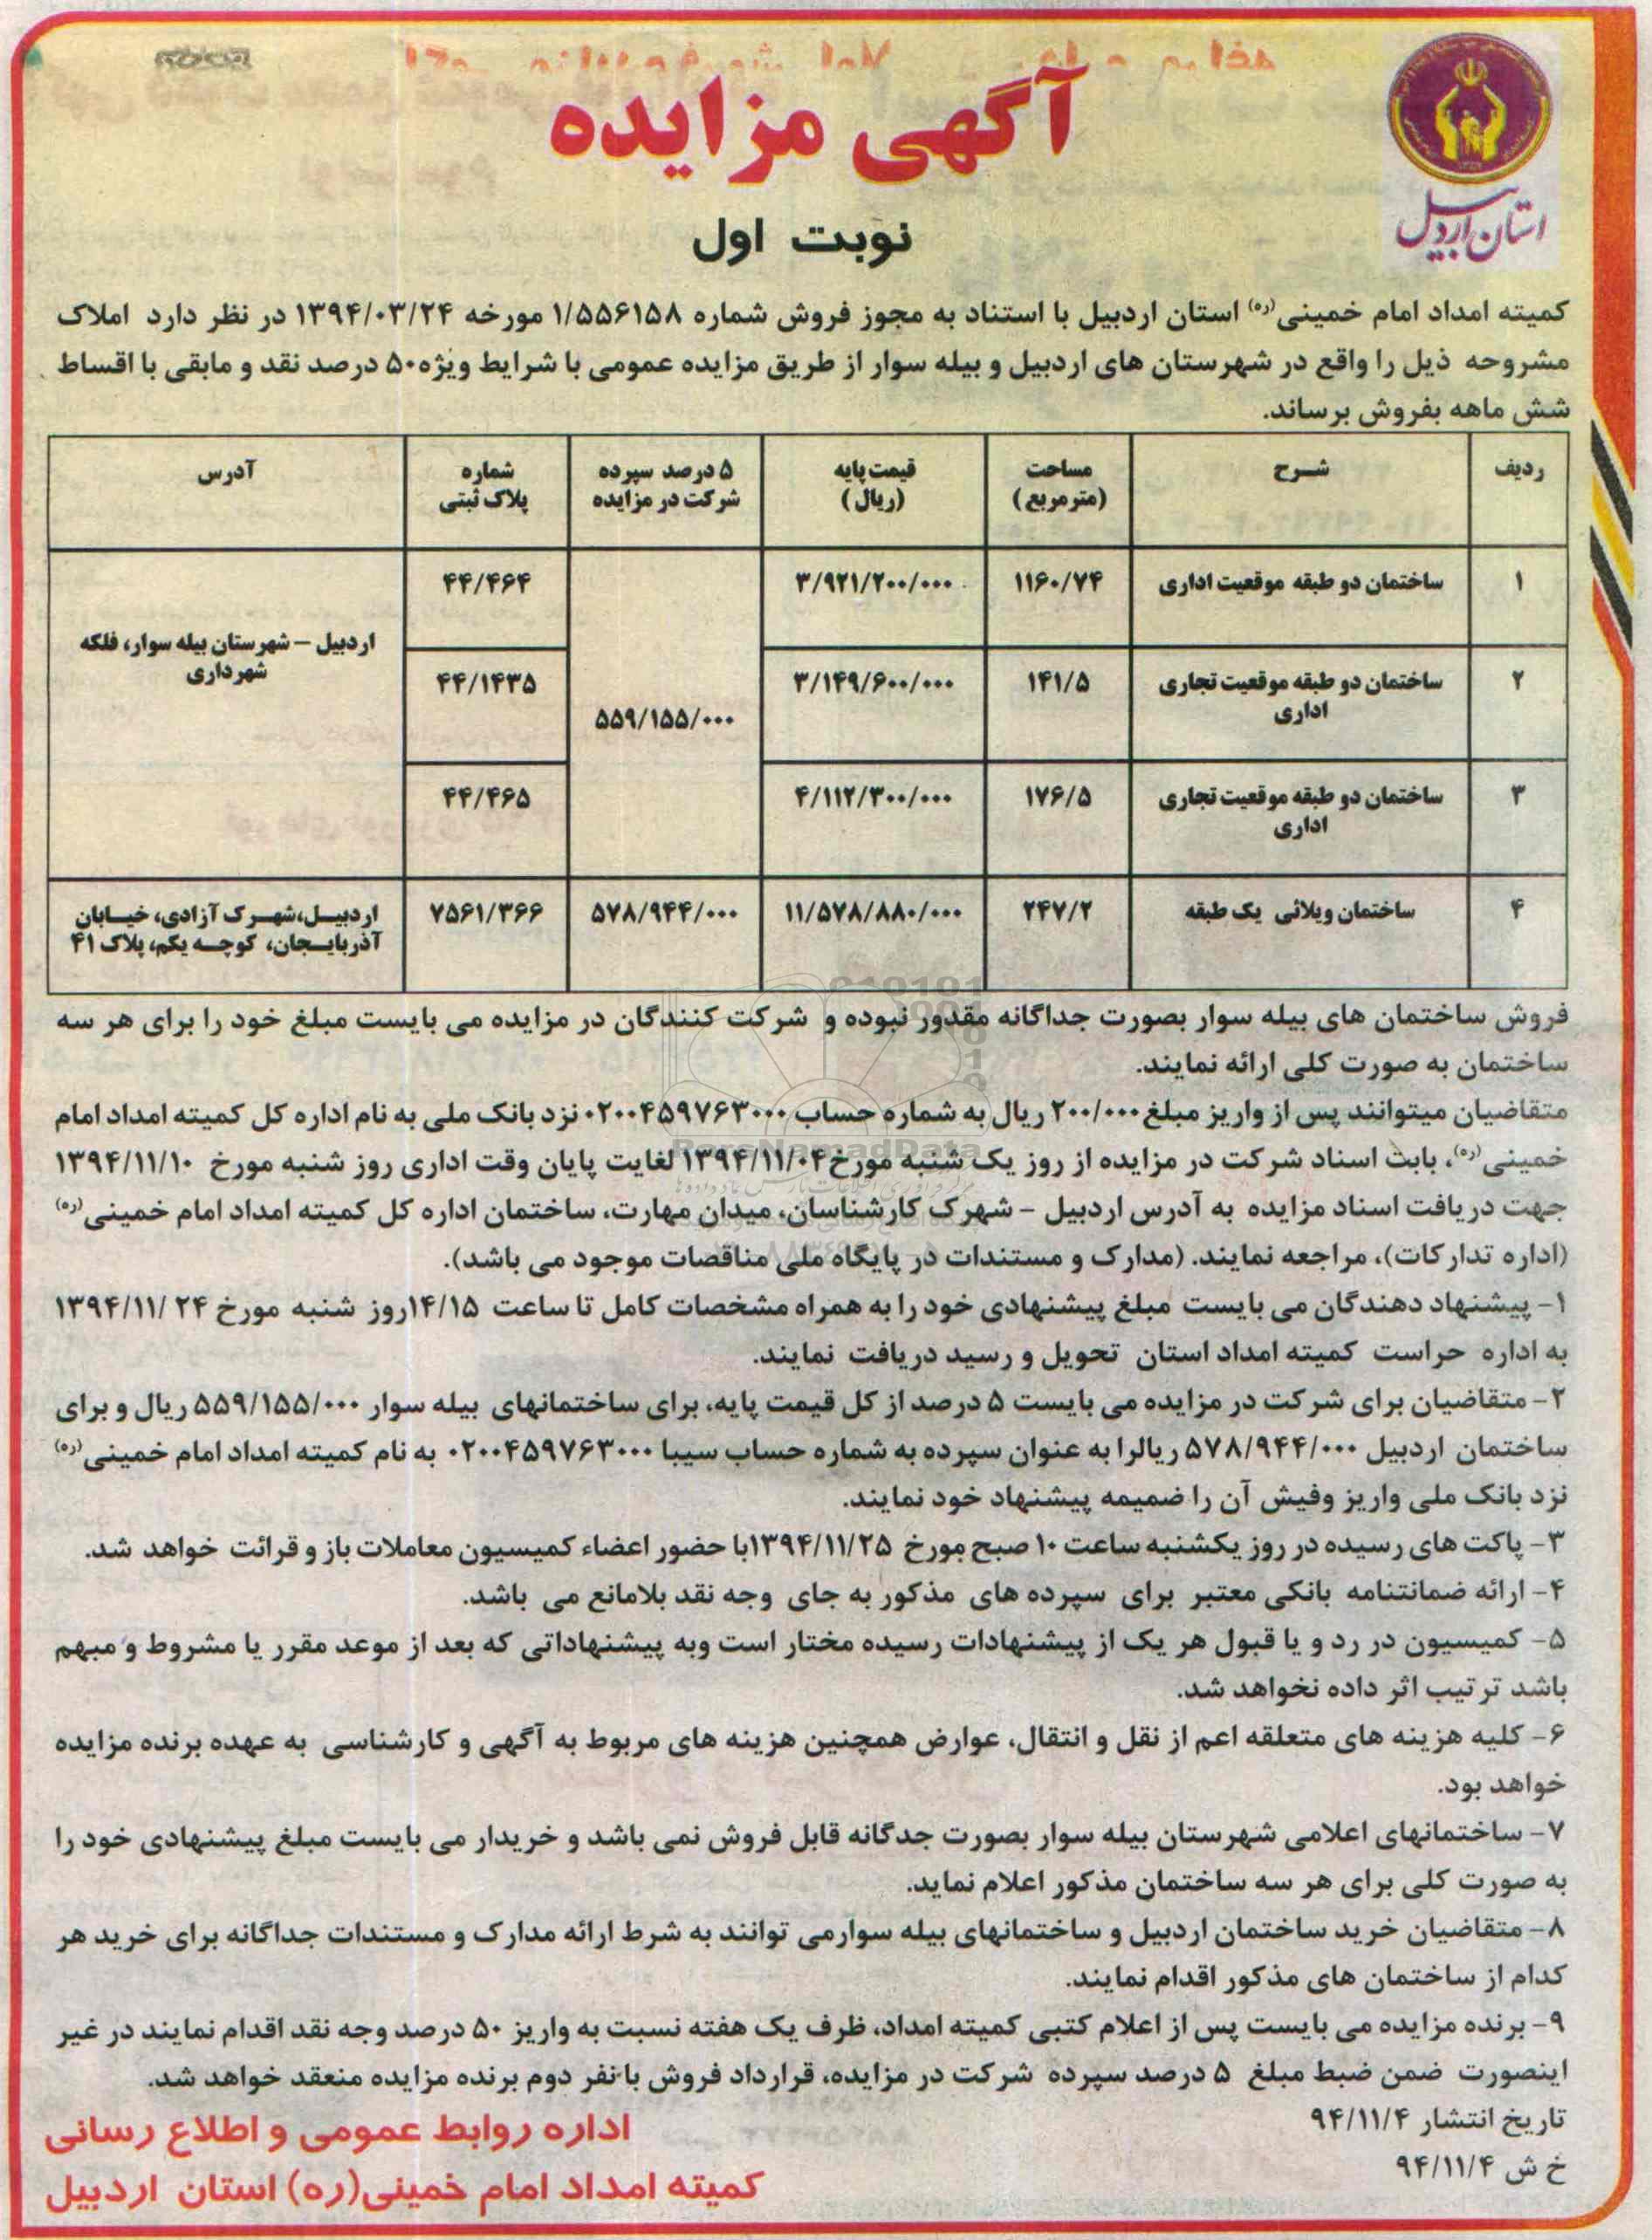 آگهی مزایده
استان اردبیل
نوبت اول
کمیته امداد امام خمینی(ره) استان اردبیل با استناد به مجوز فروش شماره ۱/۵۵۶۱۵۸ مورخه ۱۳۹۴/۰۳/۲۴ در نظر دارد املاک
مشروحه ذیل را واقع در شهرستان های اردبیل و بیله سوار از طریق مزایده عمومی با شرایط ویژه ۵۰ درصد نقد و مابقی با اقساط
شش ماهه بفروش برساند.
ردیف | شرح | مساحت (مترمربع) | قیمت پایه (ریال) | ۵ درصد سپرده شرکت در مزایده | شماره پلاک ثبتی | آدرس
۱ | ساختمان دو طبقه موقعیت اداری | ۱۱۶۰/۷۴ | ۳/۹۲۱/۲۰۰/۰۰۰ | ۵۵۹/۱۵۵/۰۰۰ | ۴۴/۴۶۴ | اردبیل – شهرستان بیله سوار، فلکه شهرداری
۲ | ساختمان دو طبقه موقعیت تجاری اداری | ۱۴۱/۵ | ۳/۱۴۹/۶۰۰/۰۰۰ | ۴۴/۱۴۳۵
۳ | ساختمان دو طبقه موقعیت تجاری اداری | ۱۷۶/۵ | ۴/۱۱۲/۳۰۰/۰۰۰ | ۴۴/۴۶۵
۴ | ساختمان ویلائی یک طبقه | ۲۴۷/۲ | ۱۱/۵۷۸/۸۸۰/۰۰۰ | ۵۷۸/۹۴۴/۰۰۰ | ۷۵۶۱/۳۶۶ | اردبیل،شهرک آزادی، خیابان آذربایجان، کوچه یکم، پلاک ۴۱
فروش ساختمان های بیله سوار بصورت جداگانه مقدور نبوده و شرکت کنندگان در مزایده می بایست مبلغ خود را برای هر سه
ساختمان به صورت کلی ارائه نمایند.
متقاضیان میتوانند پس از واریز مبلغ ۲۰۰/۰۰۰ ریال به شماره حساب ۰۲۰۰۴۵۹۷۶۳۰۰۰ نزد بانک ملی به نام اداره کل کمیته امداد امام
خمینی(ره)، بابت اسناد شرکت در مزایده از روز یک شنبه مورخ ۱۳۹۴/۱۱/۰۴ لغایت پایان وقت اداری روز شنبه مورخ ۱۳۹۴/۱۱/۱۰
جهت دریافت اسناد مزایده به آدرس اردبیل - شهرک کارشناسان، میدان مهارت، ساختمان اداره کل کمیته امداد امام خمینی(ره)
(اداره تدارکات)، مراجعه نمایند. (مدارک و مستندات در پایگاه ملی مناقصات موجود می باشد).
۱- پیشنهاد دهندگان می بایست مبلغ پیشنهادی خود را به همراه مشخصات کامل تا ساعت ۱۴/۱۵روز شنبه مورخ ۱۳۹۴/۱۱/۲۴
به اداره حراست کمیته امداد استان تحویل و رسید دریافت نمایند.
۲- متقاضیان برای شرکت در مزایده می بایست ۵ درصد از کل قیمت پایه، برای ساختمانهای بیله سوار ۵۵۹/۱۵۵/۰۰۰ ریال و برای
ساختمان اردبیل ۵۷۸/۹۴۴/۰۰۰ ریالرا به عنوان سپرده به شماره حساب سیبا ۰۲۰۰۴۵۹۷۶۳۰۰۰ به نام کمیته امداد امام خمینی(ره)
نزد بانک ملی واریز وفیش آن را ضمیمه پیشنهاد خود نمایند.
۳- پاکت های رسیده در روز یکشنبه ساعت ۱۰ صبح مورخ ۱۳۹۴/۱۱/۲۵با حضور اعضاء کمیسیون معاملات باز و قرائت خواهد شد.
۴- ارائه ضمانتنامه بانکی معتبر برای سپرده های مذکور به جای وجه نقد بلامانع می باشد.
۵- کمیسیون در رد و یا قبول هر یک از پیشنهادات رسیده مختار است وبه پیشنهاداتی که بعد از موعد مقرر یا مشروط و مبهم
باشد ترتیب اثر داده نخواهد شد.
۶- کلیه هزینه های متعلقه اعم از نقل و انتقال، عوارض همچنین هزینه های مربوط به آگهی و کارشناسی به عهده برنده مزایده
خواهد بود.
۷- ساختمانهای اعلامی شهرستان بیله سوار بصورت جدگانه قابل فروش نمی باشد و خریدار می بایست مبلغ پیشنهادی خود را
به صورت کلی برای هر سه ساختمان مذکور اعلام نماید.
۸- متقاضیان خرید ساختمان اردبیل و ساختمانهای بیله سوارمی توانند به شرط ارائه مدارک و مستندات جداگانه برای خرید هر
کدام از ساختمان های مذکور اقدام نمایند.
۹- برنده مزایده می بایست پس از اعلام کتبی کمیته امداد، ظرف یک هفته نسبت به واریز ۵۰ درصد وجه نقد اقدام نمایند در غیر
اینصورت ضمن ضبط مبلغ ۵ درصد سپرده شرکت در مزایده، قرارداد فروش با نفر دوم برنده مزایده منعقد خواهد شد.
تاریخ انتشار ۹۴/۱۱/۴
خ ش ۹۴/۱۱/۴
اداره روابط عمومی و اطلاع رسانی
کمیته امداد امام خمینی(ره) استان اردبیل
ParsNamadData